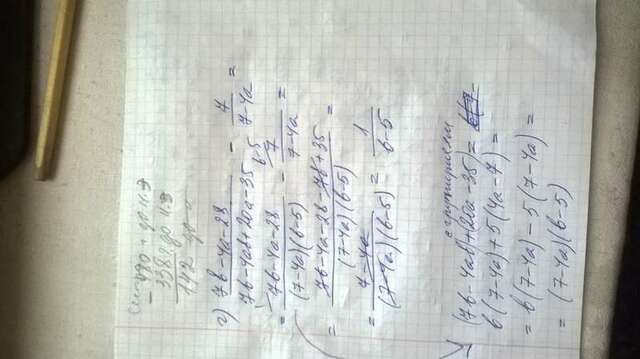 480
- 338
142
г) (7b-4a-28)/(7b-4ab+20a-35) - 7/(7-4a) =
= (7b-4a-28)/((7-4a)(b-5)) - 7/(7-4a) (b-5 =
= (7b-4a-28-7b+35)/((7-4a)(b-5)) =
= (7-4a)/((7-4a)(b-5)) = 1/(b-5)
(7b-4ab)+(20a-35) =
b(7-4a)+5(4a-7) =
= b(7-4a)-5(7-4a) =
= (7-4a)(b-5)